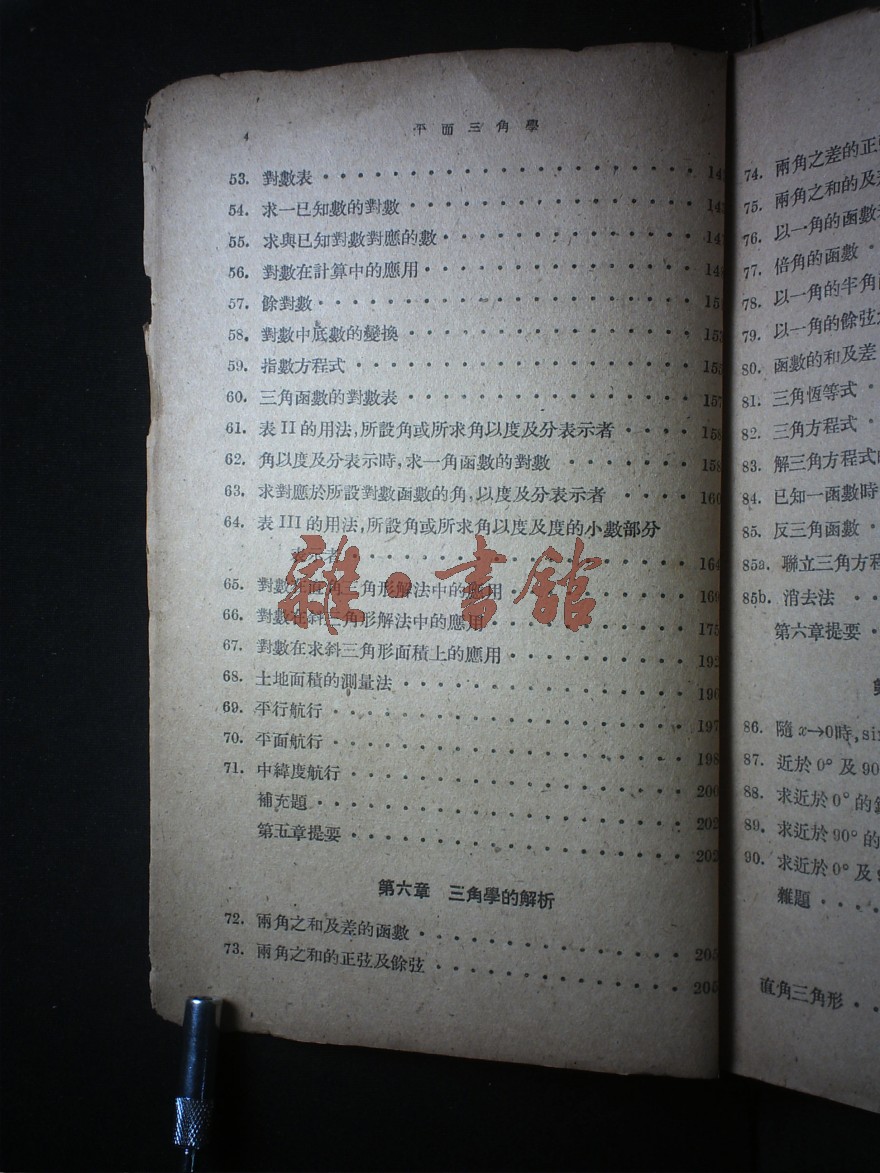 4
平面三角學
53. 對數表
54. 求一已知數的對數
55. 求與已知對數對應的數
56. 對數在計算中的應用
57. 餘對數
58. 對數中底數的變換
59. 指數方程式 155
60. 三角函數的對數表 157
61. 表II的用法,所設角或所求角以度及分表示者 158
62. 角以度及分表示時,求一角函數的對數 158
63. 求對應於所設對數函數的角,以度及分表示者 160
64. 表III的用法,所設角或所求角以度及度的小數部分
表示者 164
65. 對數在直角三角形解法中的應用 169
66. 對數在斜三角形解法中的應用 175
67. 對數在求斜三角形面積上的應用 192
68. 土地面積的測量法 196
69. 平行航行 197
70. 平面航行 198
71. 中緯度航行 200
補充題 202
第五章提要 202
第六章 三角學的解析
72. 兩角之和及差的函數 205
73. 兩角之和的正弦及餘弦 205
雜·書館
74. 兩角之差的正
75. 兩角之和的及
76. 以一角的函數
77. 倍角的函數
78. 以一角的半角
79. 以一角的餘弦
80. 函數的和及差
81. 三角恆等式
82. 三角方程式
83. 解三角方程式
84. 已知一函數時
85. 反三角函數
85a. 聯立三角方程
85b. 消去法
第六章提要
86. 隨 x→0時, sin
87. 近於0° 及 90
88. 求近於0° 的
89. 求近於90° 的
90. 求近於0° 及
雜題
直角三角形